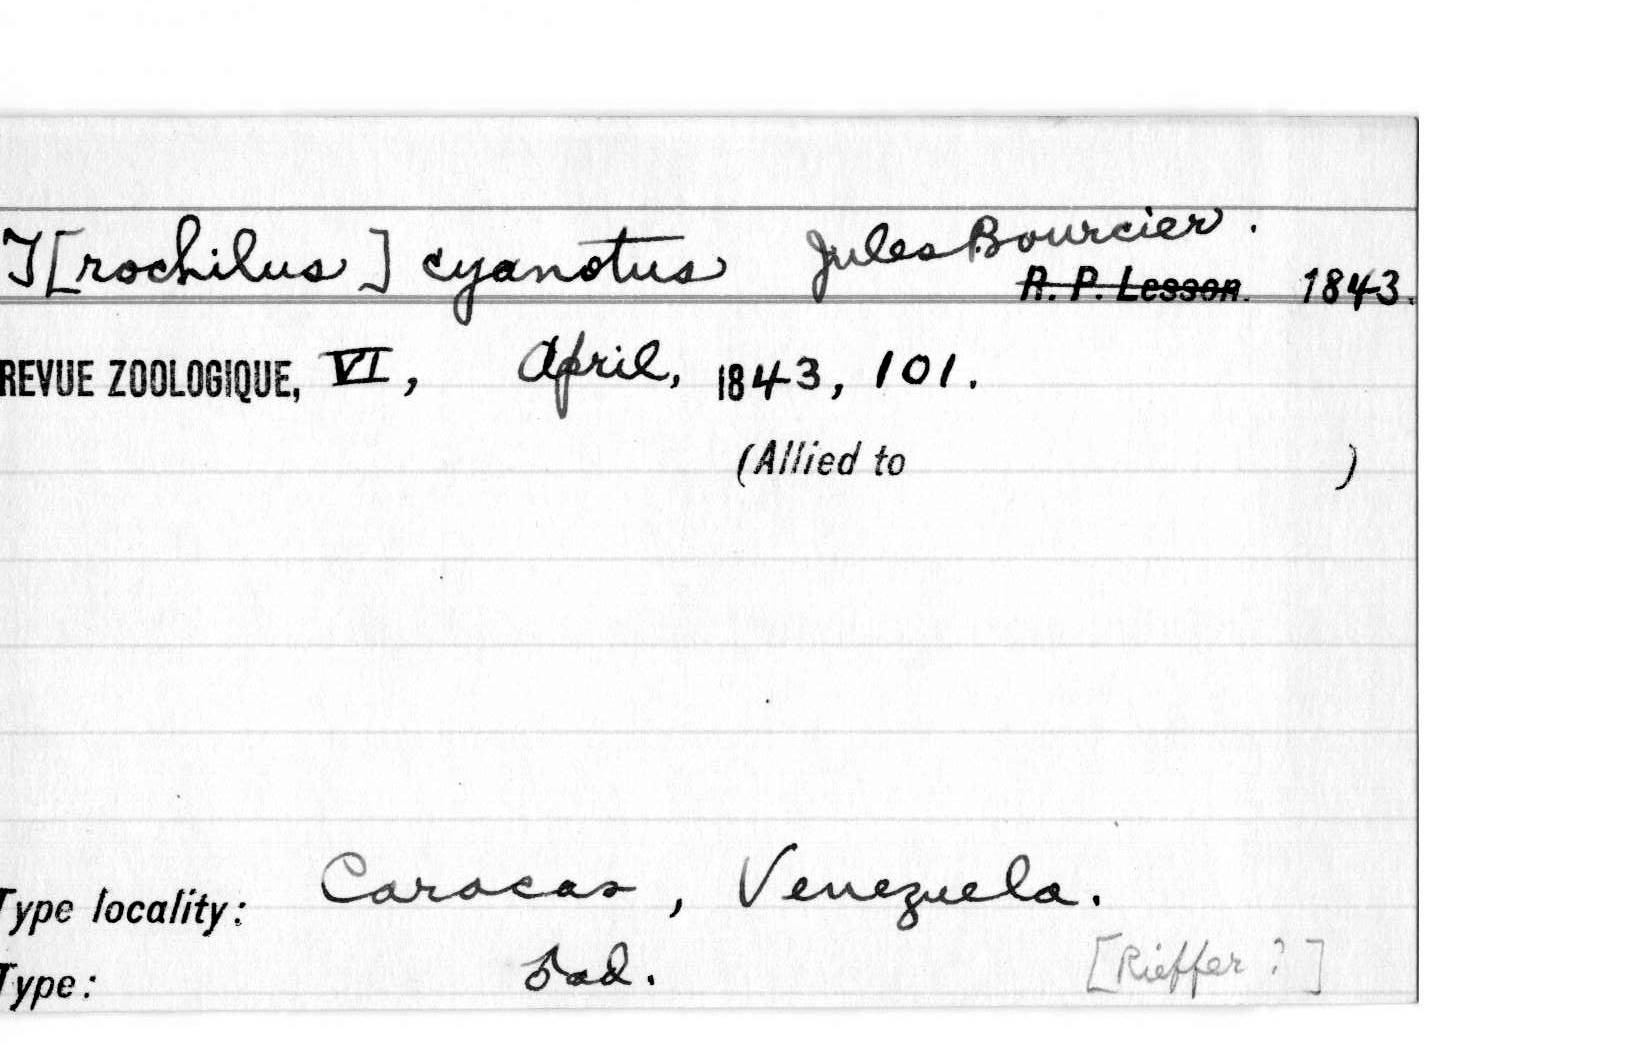 T[rochilus] cyanotus Jules Bourcier.
R. P. Lesson. 1843.
REVUE ZOOLOGIQUE, VI, April, 1843, 101.
(Allied to )
Type locality: Caracas, Venezuela.
Type: ad. [Rieffer?]